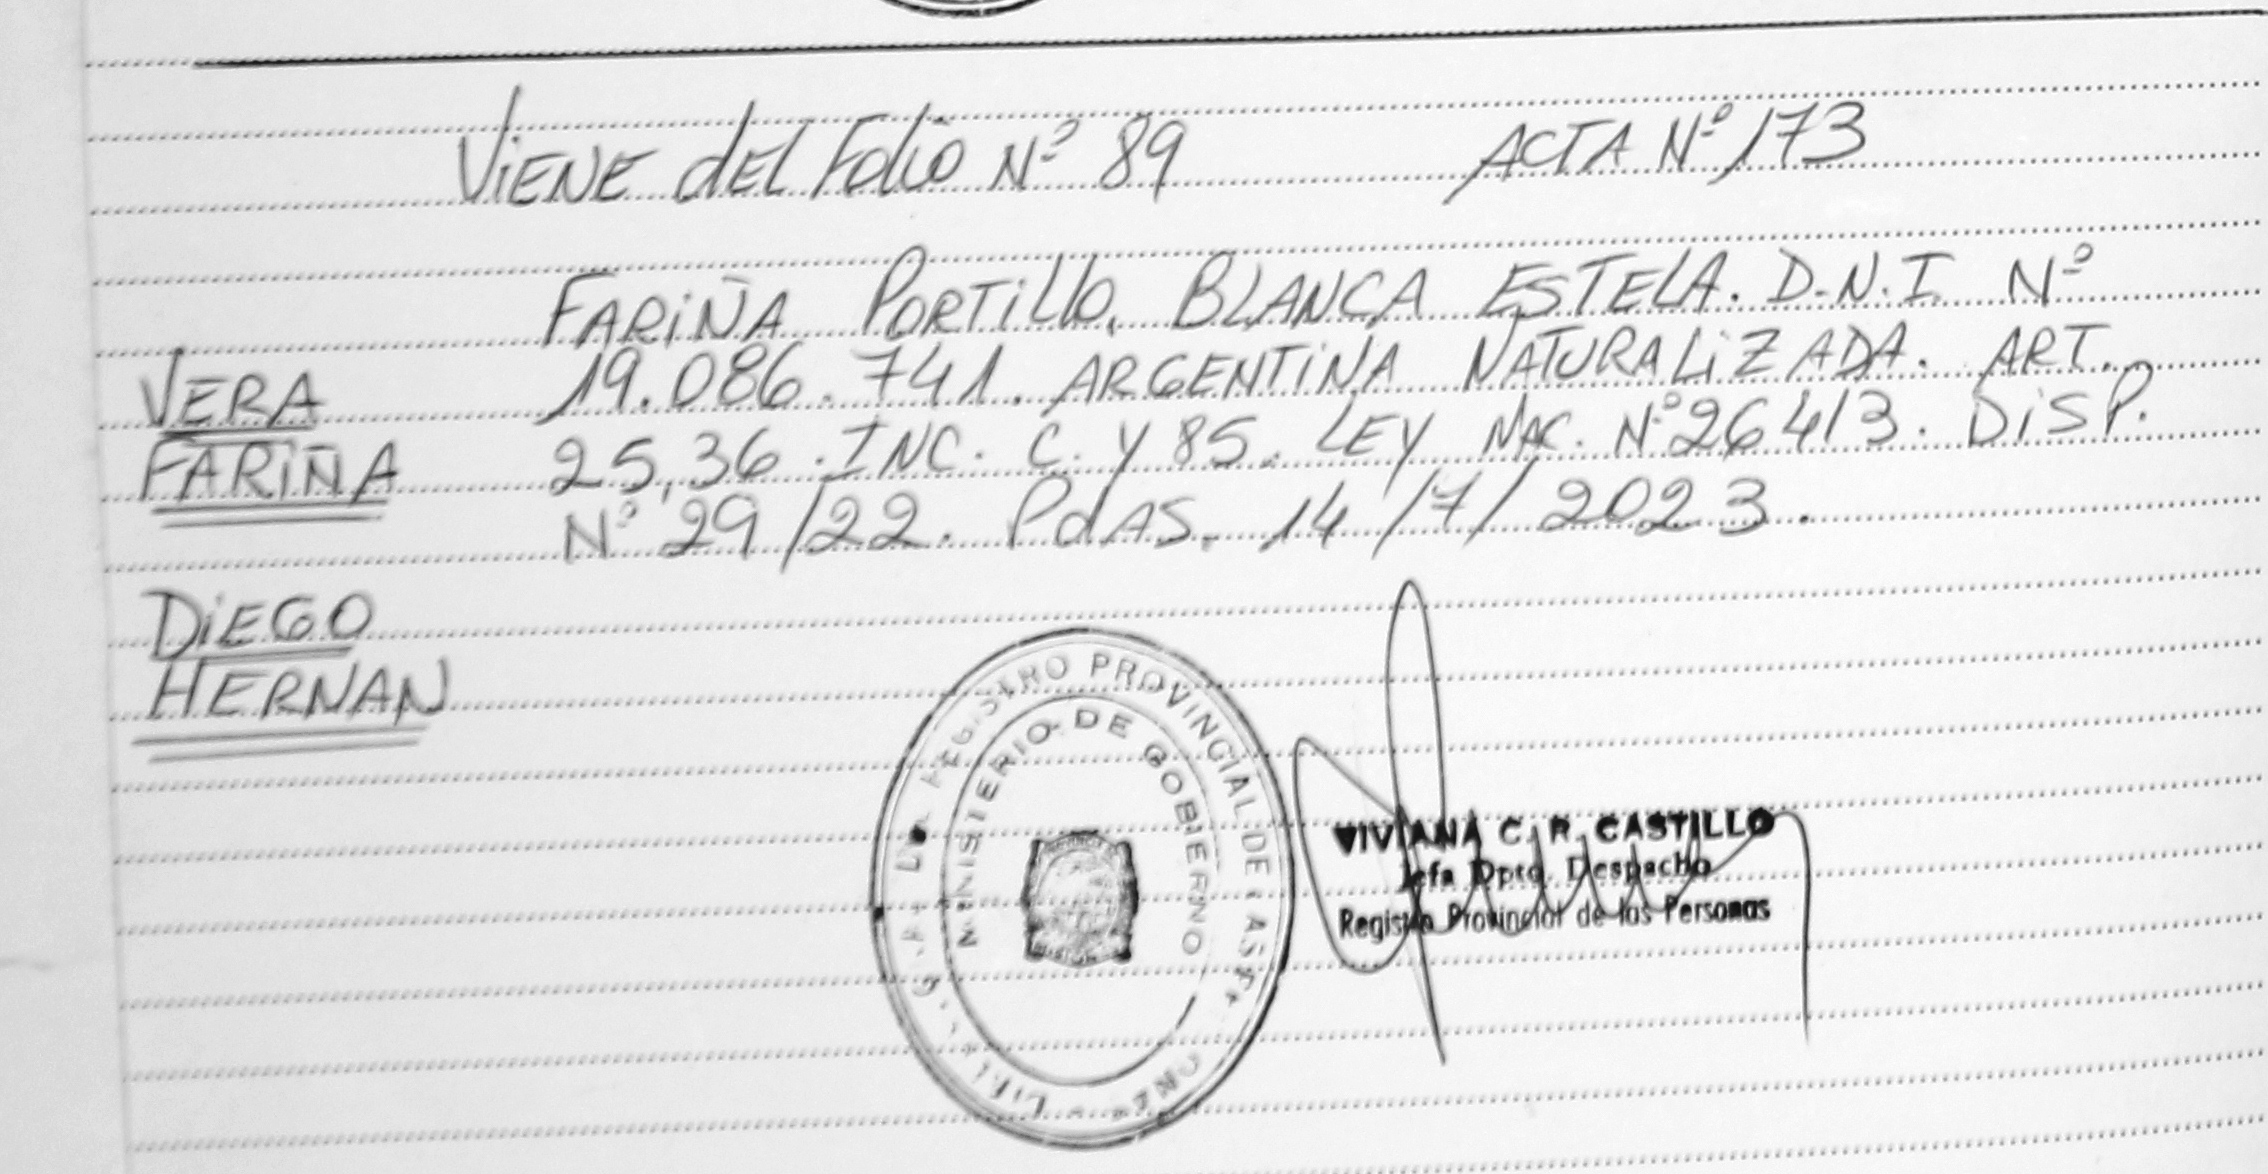 Viene del Folio Nº 89 ACTA Nº 173
FARIÑA PORTILLO, BLANCA ESTELA. D.N.I Nº
19.086.741. ARGENTINA NATURALIZADA. ART.
25,36. INC. C. Y 85. LEY NAC. Nº 26413. DISP.
Nº 29/22. PdAS. 14/7/2023.
VERA
FARIÑA
DIEGO
HERNAN
REGISTRO PROVINCIAL DE LAS
MINISTERIO DE GOBIERNO
VIVIANA C. R. CASTILLO
Jefa Dpto. Despacho
Registro Provincial de las Personas